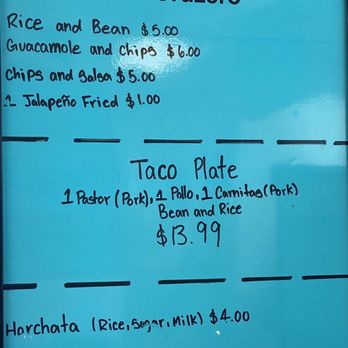 Rice and Bean $5.00
Guacamole and Chips $6.00
Chips and Salsa $5.00
1 Jalapeño Fried $1.00
Taco Plate
1 Pastor (Pork), 1 Pollo, 1 Carnitas (Pork)
Bean and Rice
$13.99
Horchata (Rice, Sugar, Milk) $4.00